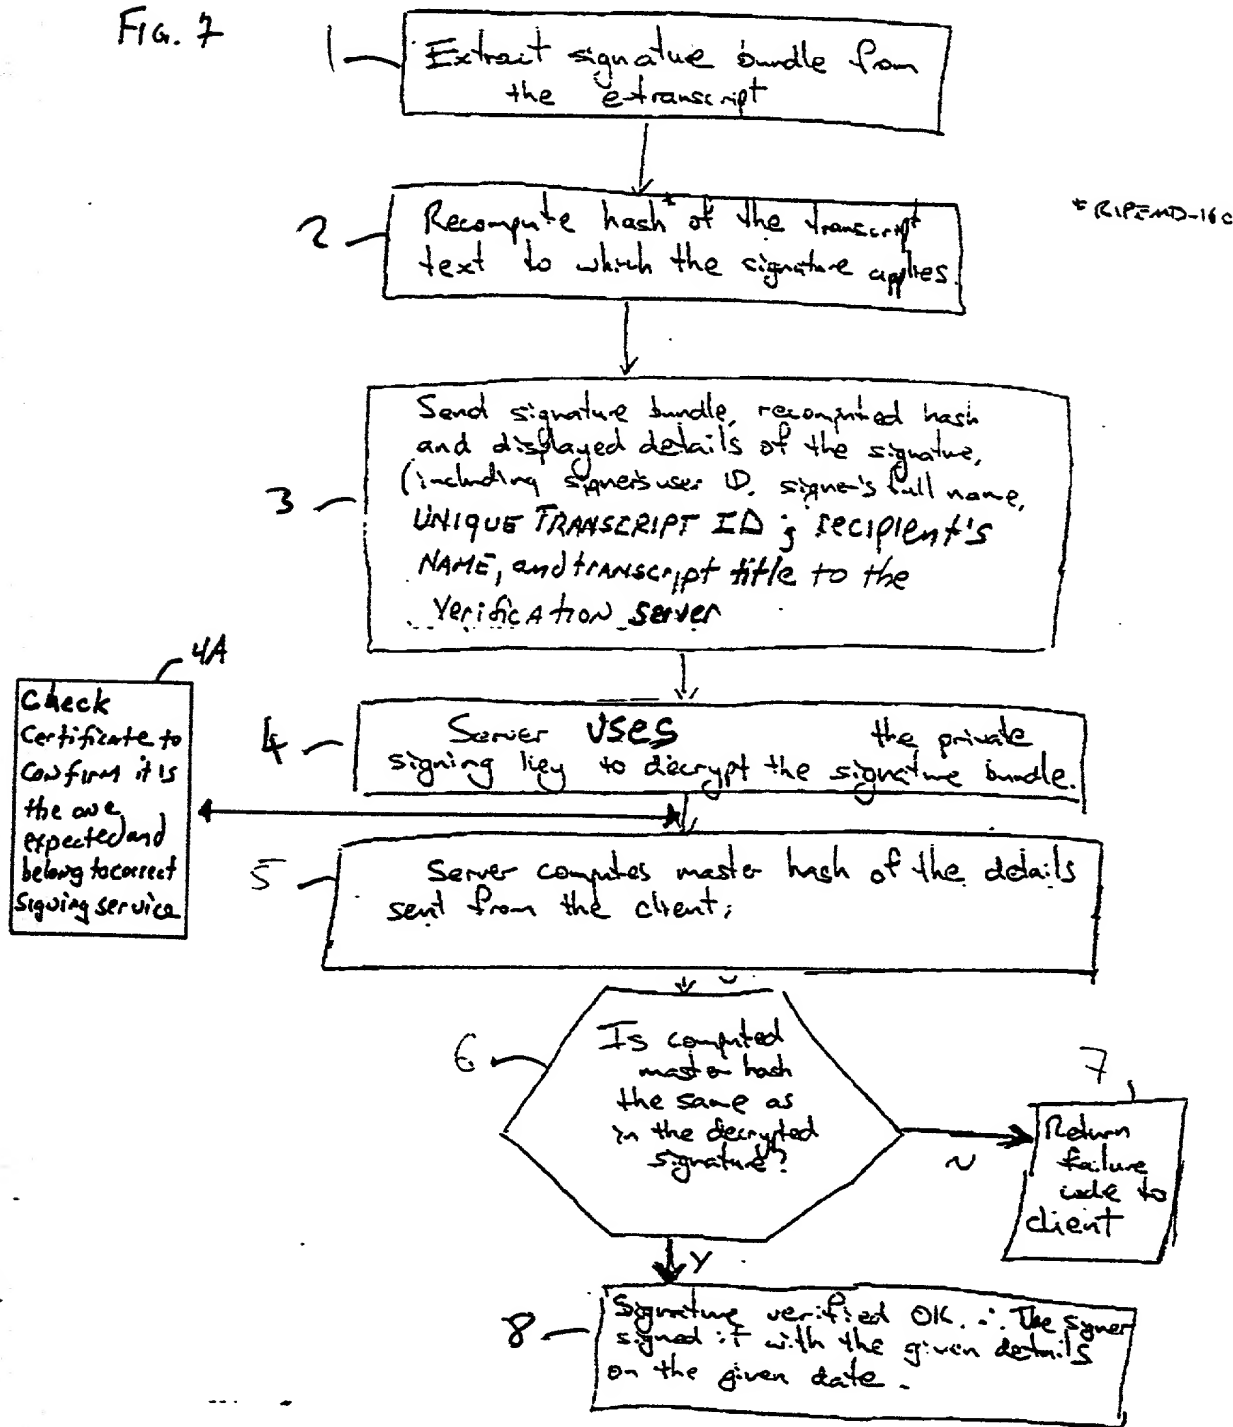 FIG. 7
1
Extract signature bundle from
the e-transcript
2
Recompute hash* of the transcript
text to which the signature applies.
* RIPEMD-160
3
Send signature bundle, recomputed hash
and displayed details of the signature,
(including signer's user ID, signer's full name,
UNIQUE TRANSCRIPT ID; recipient's
NAME, and transcript title to the
Verification server
4A
Check
Certificate to
Confirm it is
the one
expected and
belong to correct
Signing service
4
Server uses the private
signing key to decrypt the signature bundle.
5
Server computes master hash of the details
sent from the client;
6
Is computed
master hash
the same as
in the decrypted
signature?
N
7
Return
failure
code to
client
Y
8
Signature verified OK. ∴ The signer
signed it with the given details
on the given date.